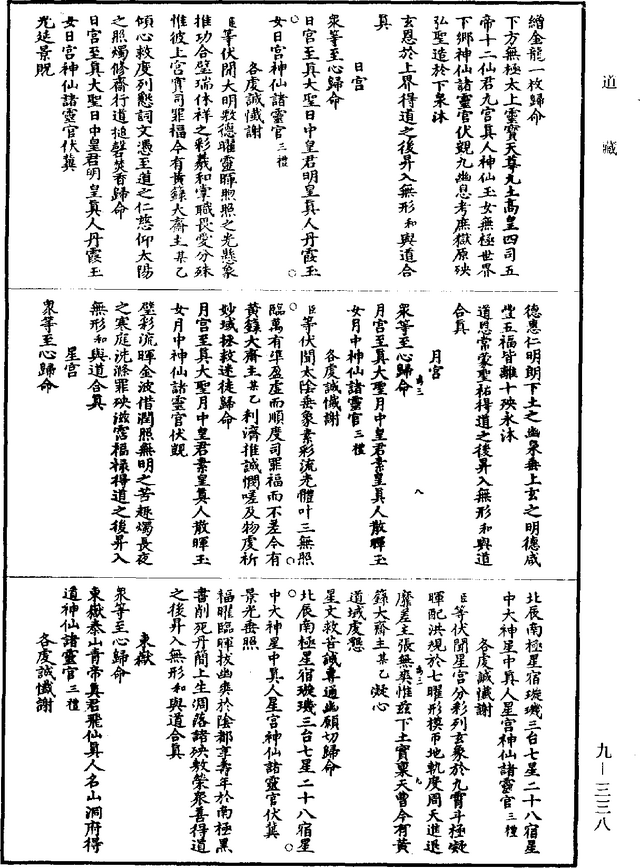 道藏
繒金龍一枚歸命
下方無極太上靈寶天尊九土高皇四司五
帝十二仙君九宮真人神仙玉女無極世界
下鄉神仙諸靈官伏覬九幽息考庶獄原殃
弘聖造於下泉沐
玄恩於上界得道之後昇入無形和與道合
真
日宮
眾等至心歸命
日宮至真大聖日中皇君明皇真人丹霞玉
女日宮神仙諸靈官三禮
各虔誠懺謝
臣等伏聞大明敷德曜靈暉照照之光懸象
推功合璧瑞休祥之彩羲和掌職畏愛分殊
惟彼上宮寔司罪福今有黃籙大齋主某乙
傾心救度列懇詞文憑至道之仁慈仰太陽
之照燭修齋行道搥磬焚香歸命
日宮至真大聖日中皇君明皇真人丹霞玉
女日宮神仙諸靈官伏冀
光延景貺
德惠仁明朗下土之幽泉垂上玄之明德咸
登五福皆離十殃永沐
道恩常蒙聖祐得道之後昇入無形和與道
合真
月宮
眾等至心歸命
月宮至真大聖月中皇君素皇真人散暉玉
女月中神仙諸靈官三禮
各虔誠懺謝
臣等伏聞太陰垂象素彩流光體叶三無照
臨萬有準盈虛而順度司罪福而不差今有
黃籙大齋主某乙利濟推誠憫嗟及物虔祈
妙域拯救迷徒歸命
月宮至真大聖月中皇君素皇真人散暉玉
女月中神仙諸靈官伏覬
璧彩流暉金波借潤照無明之苦趣燭長夜
之寒庭洗滌罪殃滋霑福祿得道之後昇入
無形和與道合真
星宮
眾等至心歸命
北辰南極星宿璇璣三台七星二十八宿星
中大神星中真人星宮神仙諸靈官三禮
各虔誠懺謝
臣等伏聞星宮分彩列玄象於九霄斗極凝
暉配洪規於七曜形模帀地軌度周天進退
靡差主張無爽惟茲下土實稟天曹今有黃
籙大齋主某乙凝心
道域虔懇
星文救苦誠專通幽願切歸命
北辰南極星宿璇璣三台七星二十八宿星
中大神星中真人星宮神仙諸靈官伏冀
景光垂照
福曜臨暉拔幽爽於陰都享壽年於南極黑
書削死丹簡上生凋落諸殃敷榮眾善得道
之後昇入無形和與道合真
東嶽
眾等至心歸命
東嶽泰山青帝真君飛仙真人名山洞府得
道神仙諸靈官三禮
各虔誠懺謝
九—三三八